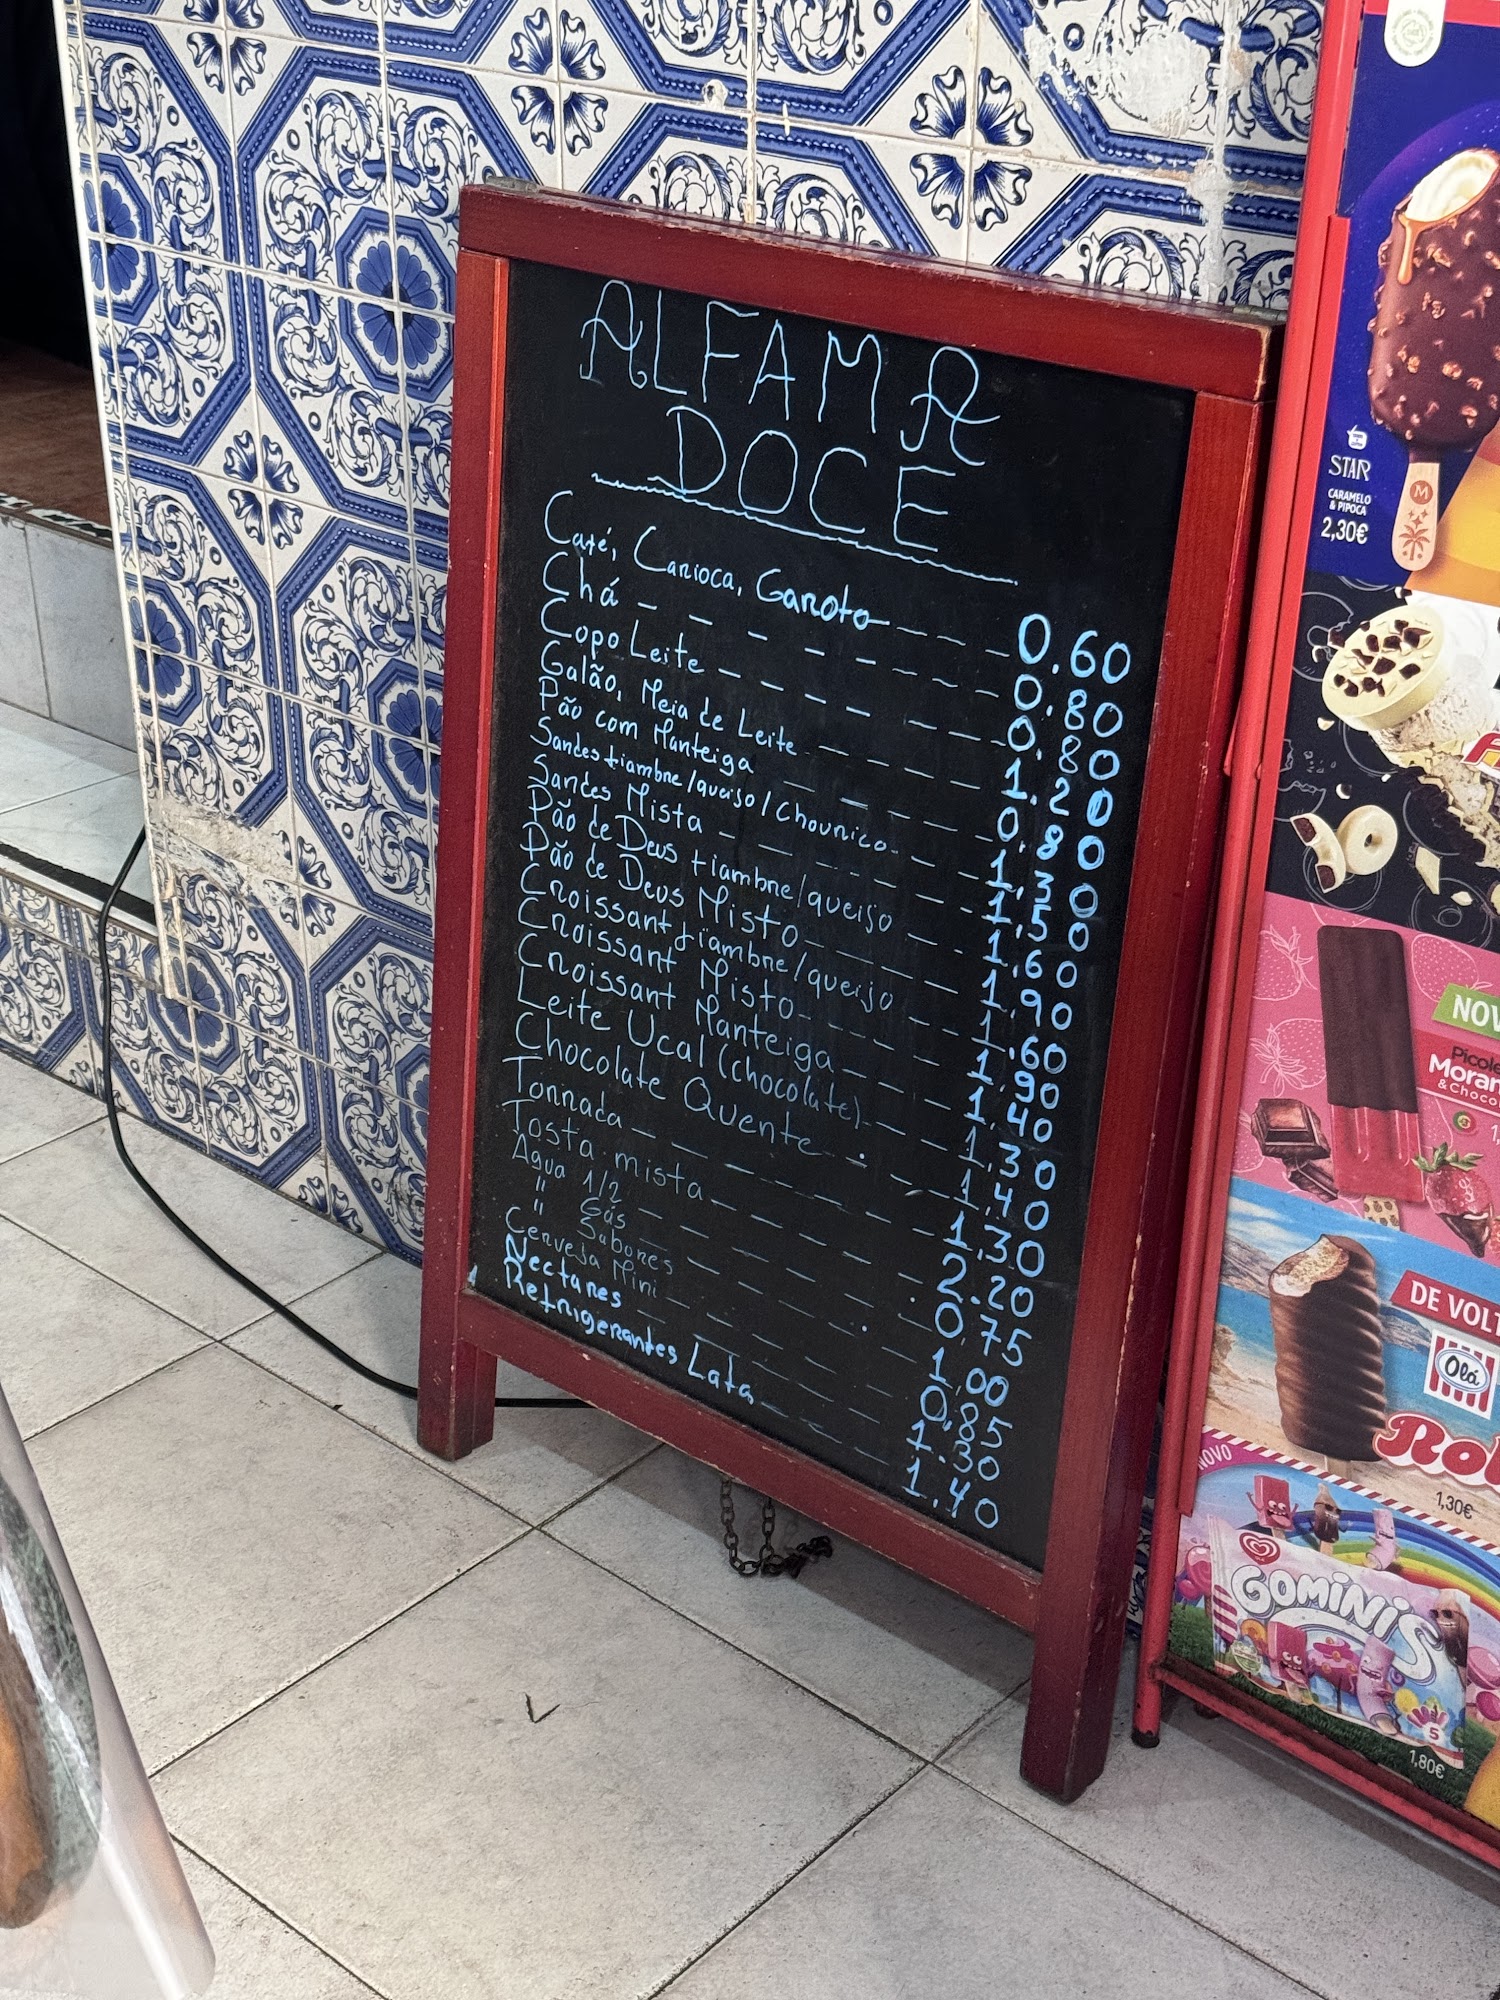 ALFAMA
DOCE
Café, Carioca, Garoto 0.60
Chá 0.80
Copo Leite 0.80
Galão, Meia de Leite 1.20
Pão com Manteiga 0.80
Sandes fiambre/queijo/chounico 1.30
Sandes Mista 1.50
Pão de Deus fiambre/queijo 1.60
Pão de Deus Misto 1.90
Croissant fiambre/queijo 1.60
Croissant Misto 1.90
Croissant Manteiga 1.40
Leite Ucal (chocolate) 1.30
Chocolate Quente 1.40
Torrada 1.30
Tosta mista 2.20
Agua 1/2 0.75
" Gás
" Sabores 1.00
Cerveja Mini 0.85
Nectares 1.30
Refrigerantes Lata 1.40
STAR
CARAMELO
& PIPOCA
2,30€
NOV
Picole
Moran
& Choco
DE VOLT
Olá
Rol
1,30€
NOVO
GOMINIS
5
1,80€